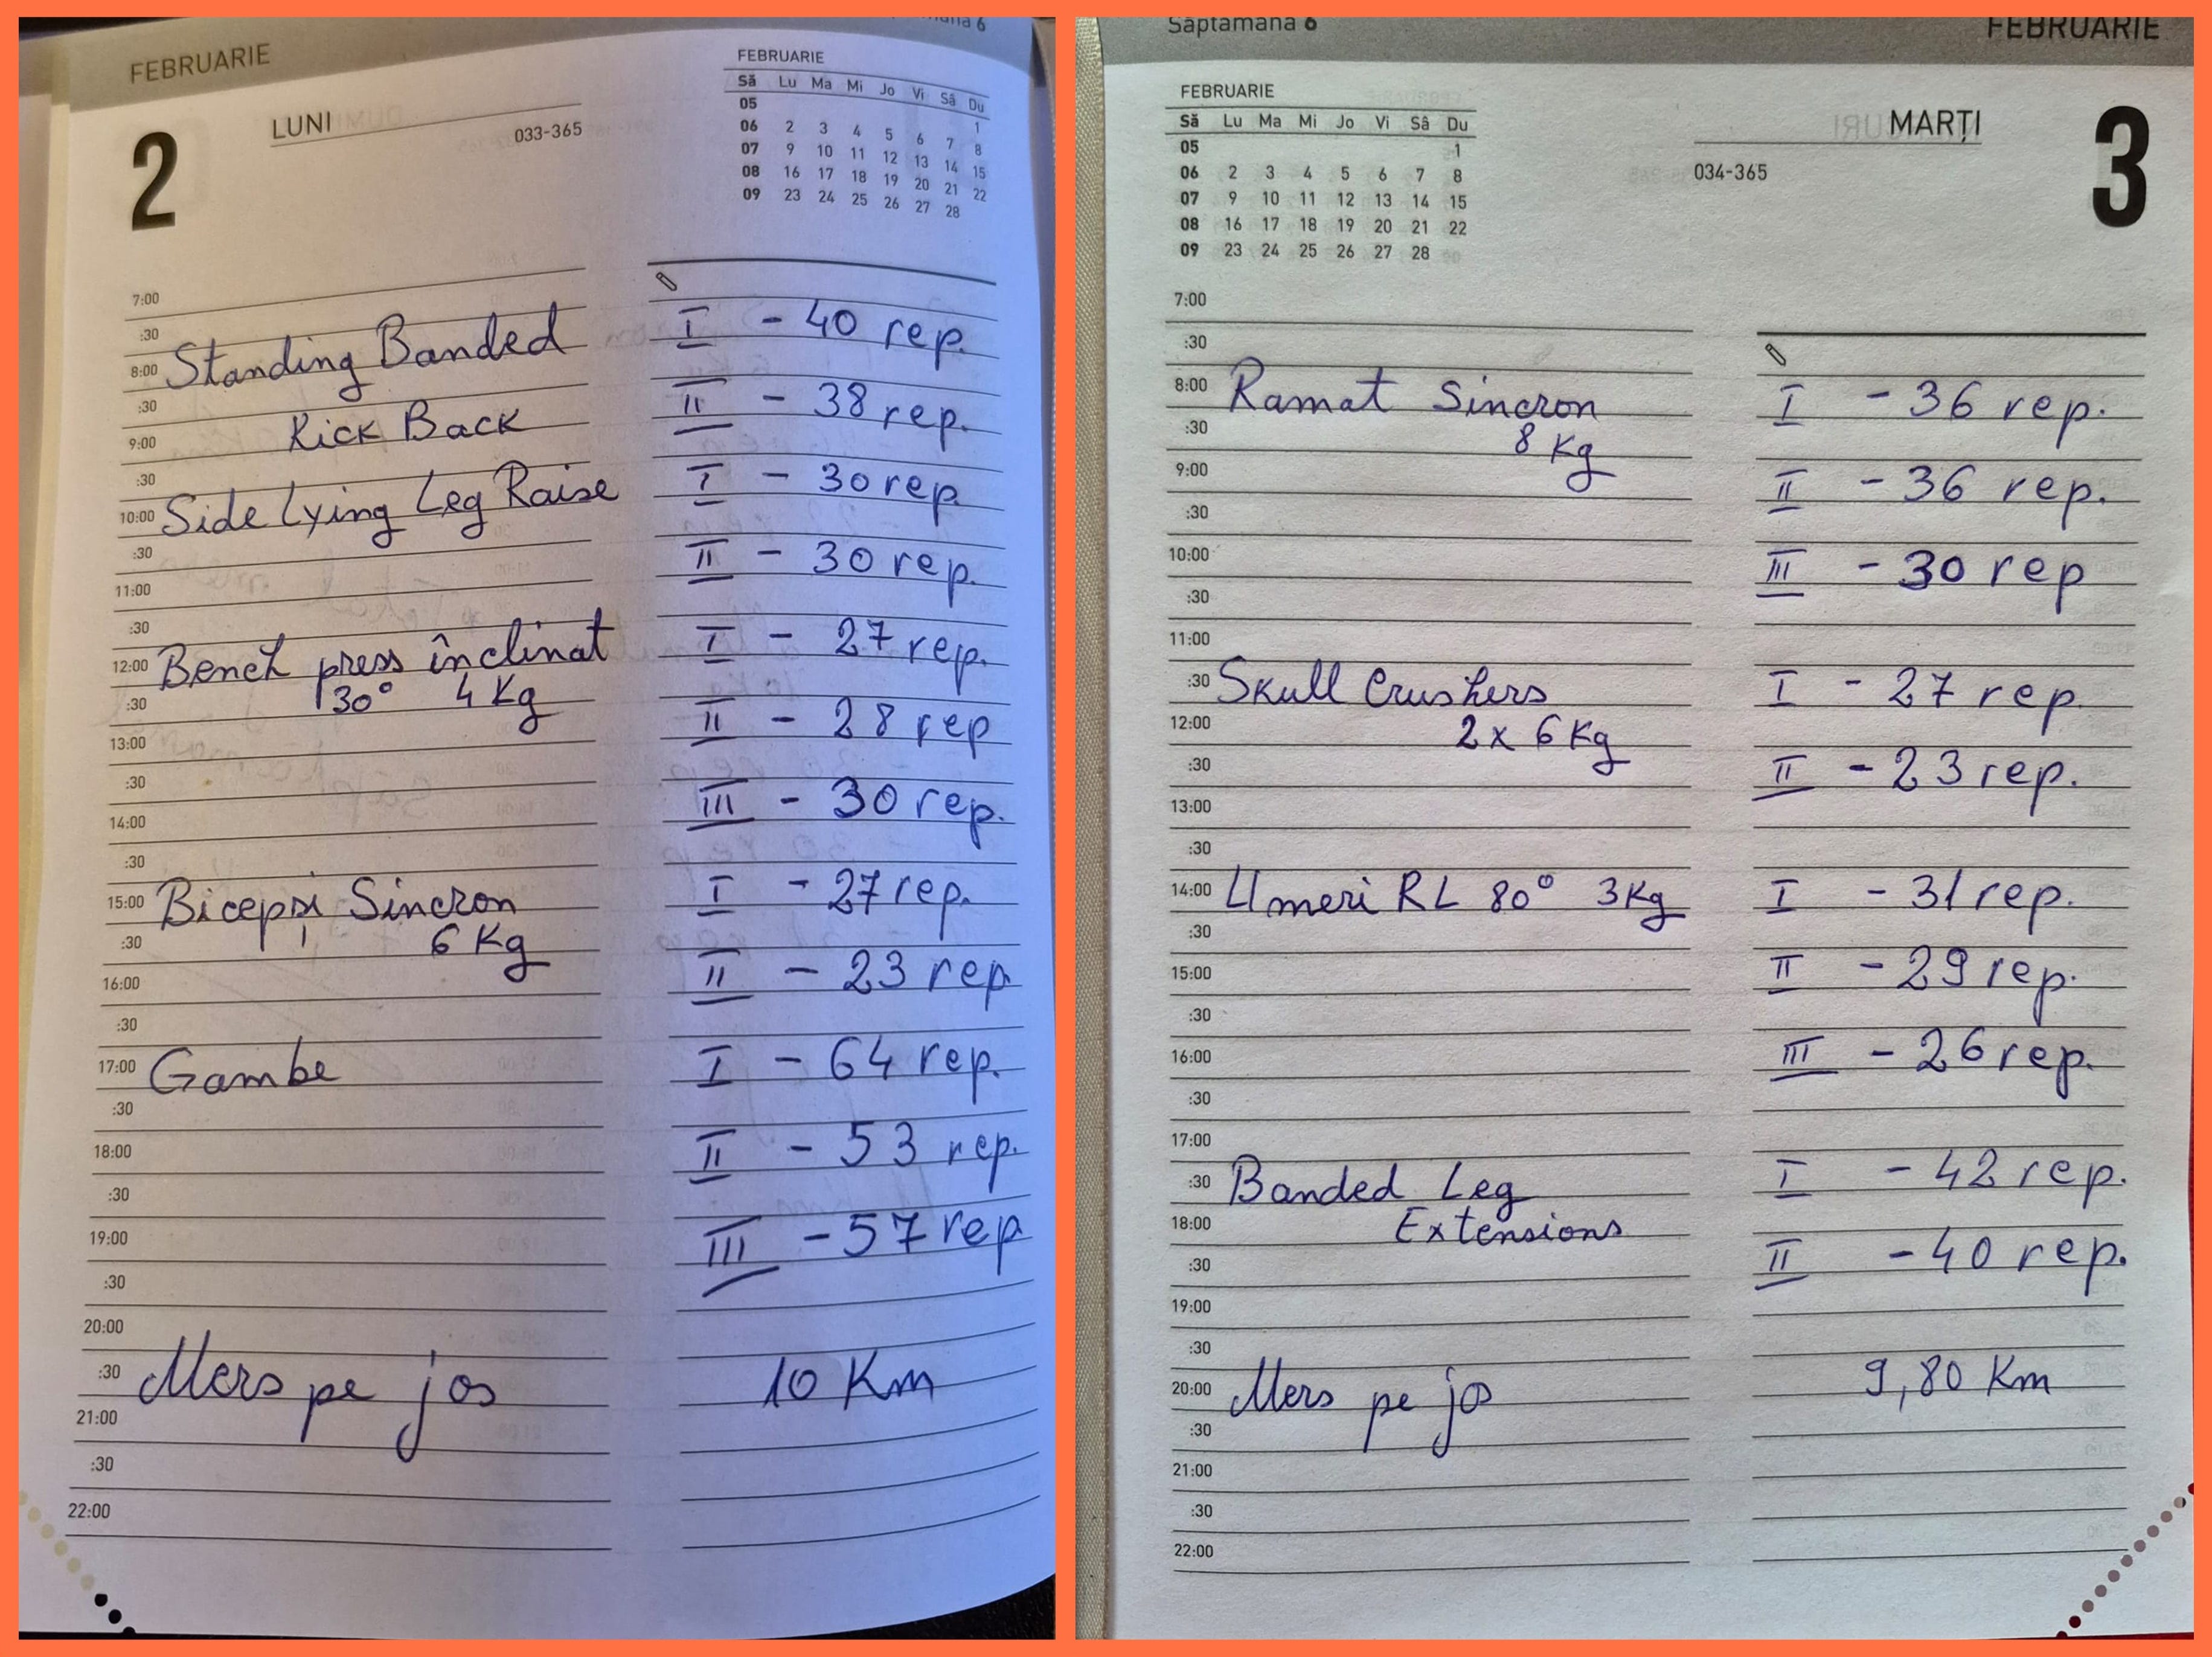 FEBRUARIE
LUNI
2
033-365
FEBRUARIE
Să Lu Ma Mi Jo Vi Sâ Du
05 1
06 2 3 4 5 6 7 8
07 9 10 11 12 13 14 15
08 16 17 18 19 20 21 22
09 23 24 25 26 27 28
7:00
:30
Standing Banded I - 40 rep.
8:00
:30 II - 38 rep.
Kick Back
9:00
:30
Side Lying Leg Raise I - 30 rep.
10:00
:30 II - 30 rep.
11:00
:30
Bench press înclinat I - 27 rep.
12:00
30° 4 Kg
:30 II - 28 rep
13:00
:30 III - 30 rep.
14:00
:30
15:00 Bicepși Sincron I - 27 rep.
:30 6 Kg
16:00 II - 23 rep
:30
17:00 Gambe I - 64 rep.
:30
18:00 II - 53 rep.
:30
19:00 III - 57 rep
:30
20:00
:30 Mers pe jos 10 Km
21:00
:30
22:00
Săptămâna 6
FEBRUARIE
FEBRUARIE
Să Lu Ma Mi Jo Vi Sâ Du
05 1
06 2 3 4 5 6 7 8
07 9 10 11 12 13 14 15
08 16 17 18 19 20 21 22
09 23 24 25 26 27 28
MARȚI
3
034-365
7:00
:30
8:00 Ramat Sincron I - 36 rep.
:30 8 Kg
9:00 II - 36 rep.
:30
10:00 III - 30 rep
:30
11:00
:30 Skull Crushers I - 27 rep.
12:00 2 x 6 Kg
:30 II - 23 rep.
13:00
:30
14:00 Umeri RL 80° 3 Kg I - 31 rep.
:30
15:00 II - 29 rep.
:30
16:00 III - 26 rep.
:30
17:00
:30 Banded Leg I - 42 rep.
18:00 Extensions
:30 II - 40 rep.
19:00
:30
20:00 Mers pe jos 9,80 Km
:30
21:00
:30
22:00